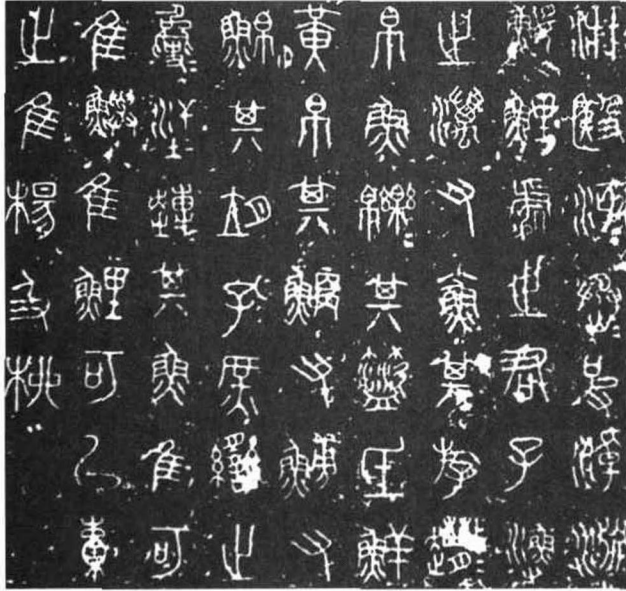 汧殹沔丞皮淖淵
鰋鯉處之君子漁
之澫又小魚其斿
帛魚皪其盜氐鮮
黃帛其鯾又鰟又
鮊其孔庶臠之
其魚隹可
隹鱮隹鯉可以橐
之隹楊及柳